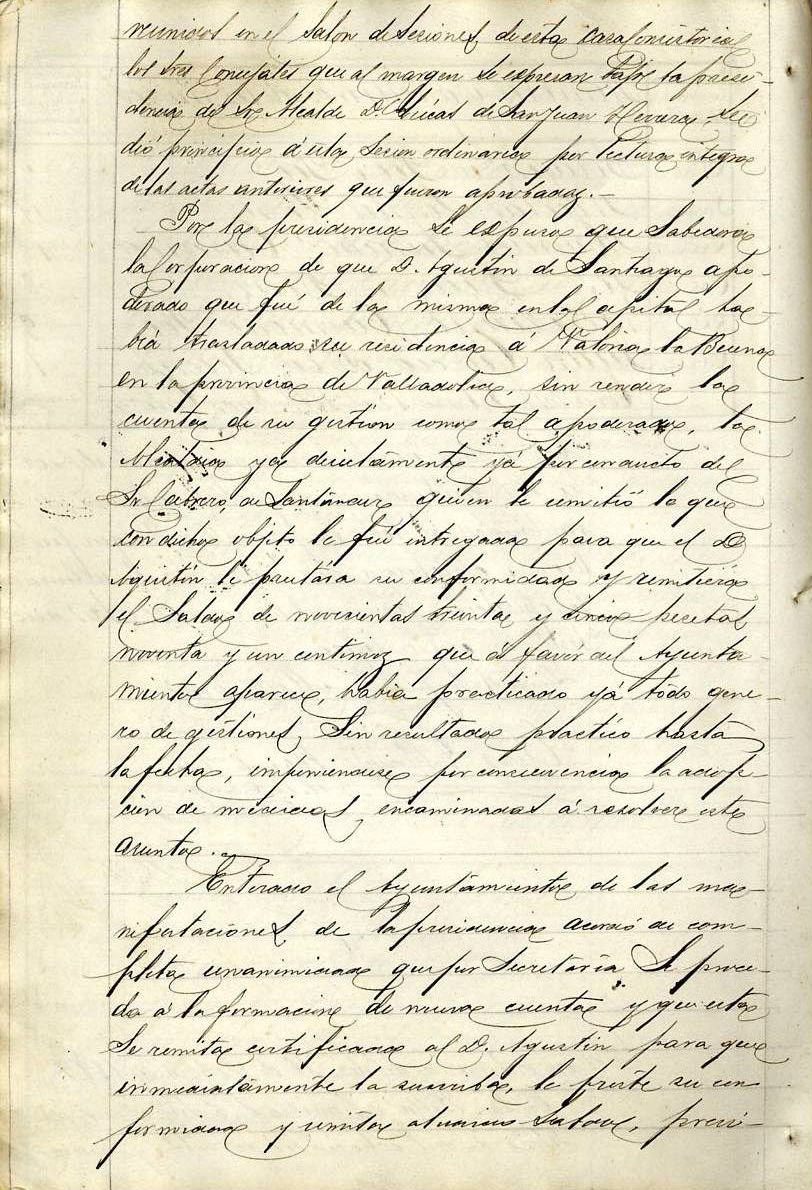 reunidos en el Salon de Sesiones de esta Casa Consistorial
los tres Concejales que al margen se expresan bajo la presi-
dencia del Sr. Alcalde D. Lúcas de San Juan Herrera, se
dió principio á esta Sesion ordinaria por lectura integra
de las actas anteriores que fueron aprobadas.-
Por la presidencia se expuso que Sabedora
la Corporacion de que D. Agustin de Santiago apo-
derado que fué de la misma en la Capital ha-
biá trasladado su residencia á Valoria la Buena
en la provincia de Valladolid, sin rendir la
cuenta de su gestion como tal apoderado, la
Alcaldia ya directamente yá por conducto del
Sr. Cabrero, de Santander quien le remitió la que
con dicho objeto le fué entregada para que el D.
Agustin le prestára su conformidad y remitiera
el Saldo de novecientas treinta y cinco pesetas
noventa y un centimos que á favor del Ayunta-
miento aparece, habia practicado yá todo gene-
ro de gestiones, Sin resultado practico hasta
la fecha, imponiendose por consecuencia la adop-
cion de medidas, encaminadas á resolver este
asunto.
Enterado el Ayuntamiento de las ma-
nifestaciones de la presidencia acordó de com-
pleta unanimidad que por Secretaría Se proce-
da á la formacion de nueva cuenta y que esta
Se remita certificada al D. Agustin para que
inmediatamente la suscriba, le preste su con-
formidad y remita el Saldo, previ-